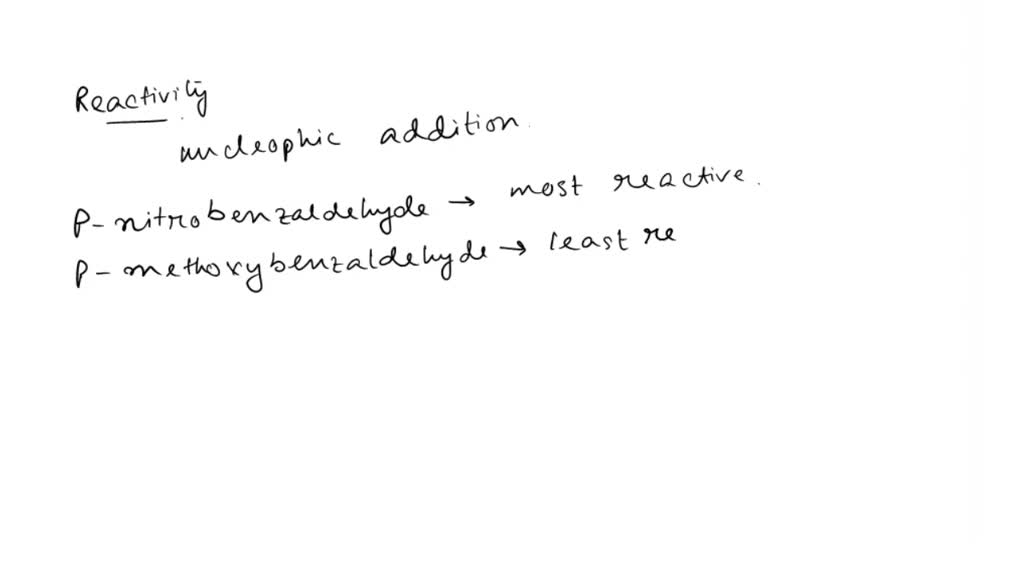 Reactivity
nucleophic addition.
P-nitrobenzaldehyde → most reactive.
P-methoxybenzaldehyde → least re